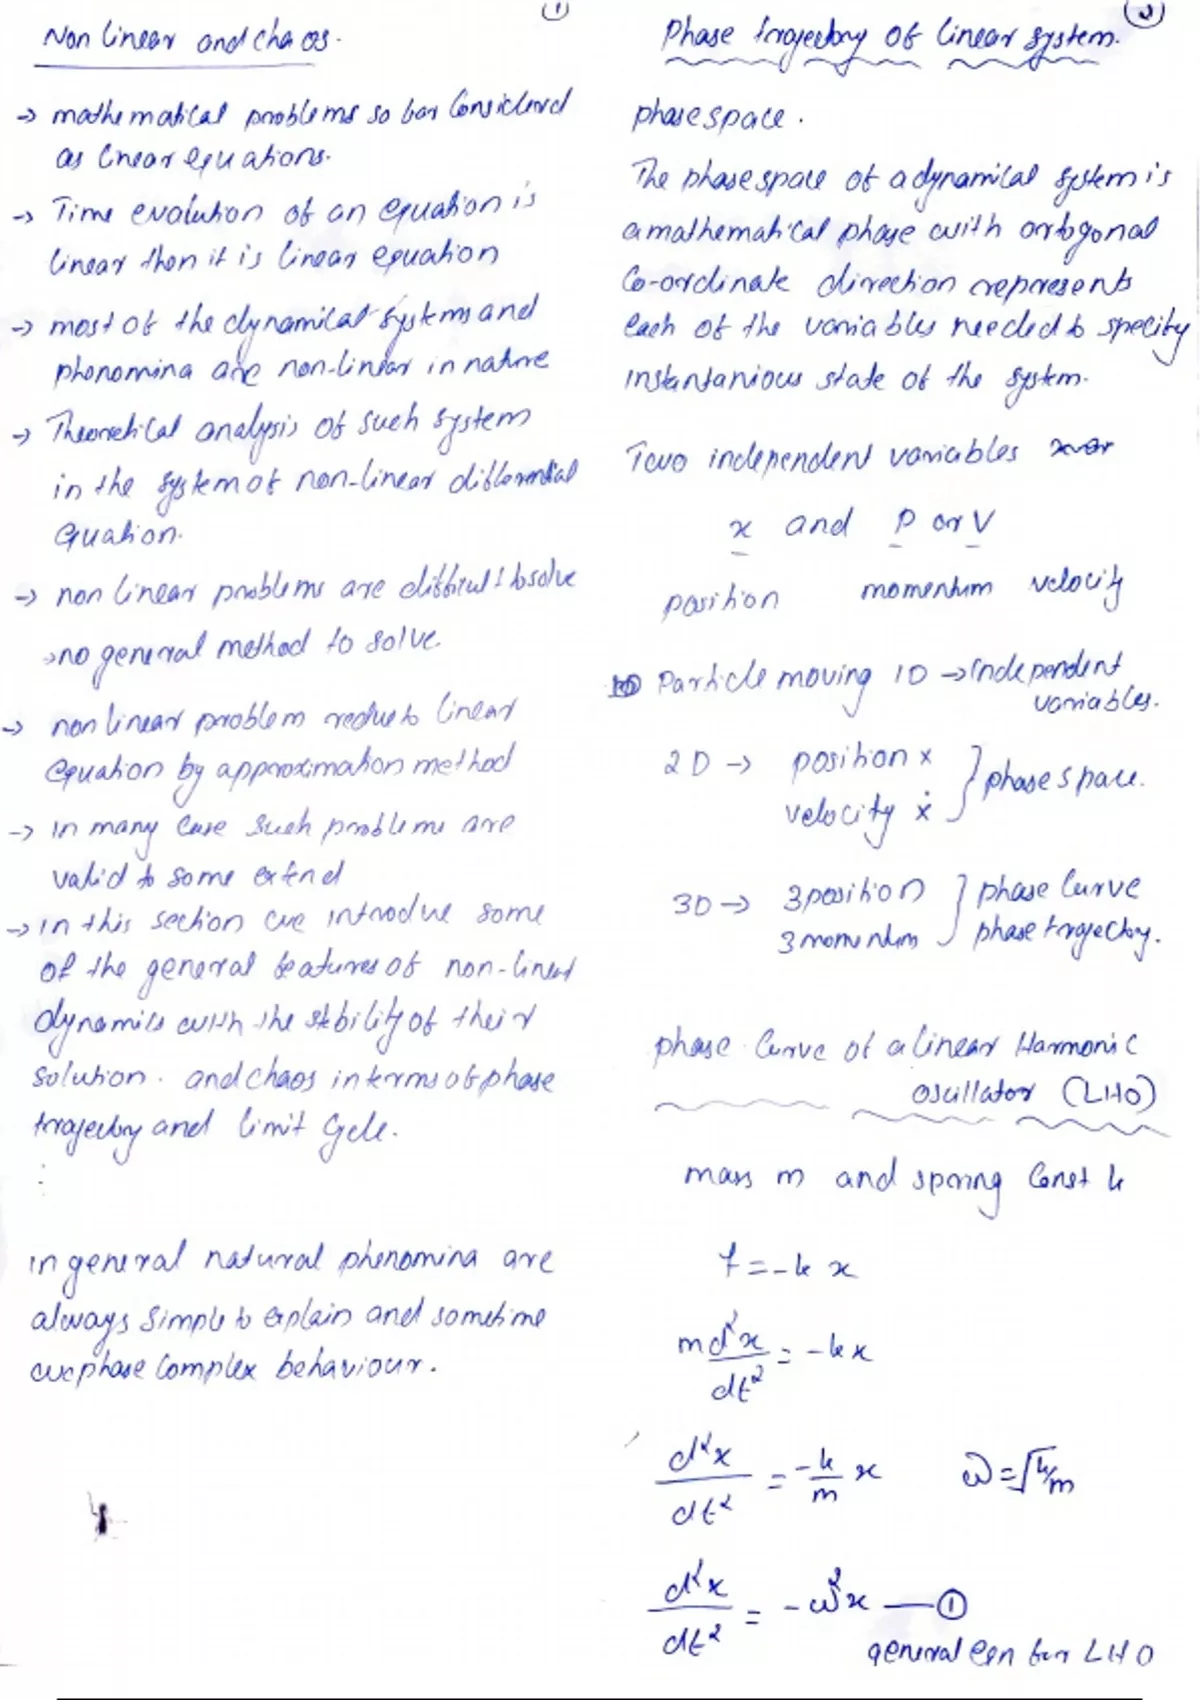 ①
Non linear and chaos.
→ mathematical problems so far Considered
as linear equations.
→ Time evolution of an equation is
linear then it is linear equation
→ most of the dynamical systems and
phenomina are non-linear in nature
→ Theoretical analysis of such system
in the system of non-linear differential
equation.
→ non linear problems are difficult to solve
→ no general method to solve.
→ non linear problem reduce to linear
equation by approximation method
→ in many case such problems are
valid to some extend
→ in this section we introduce some
of the general features of non-linear
dynamics with the stability of their
solution. and chaos in terms of phase
trajectory and limit cycle.
in general natural phenomina are
always simple to explain and sometime
complex behaviour.
②
Phase trajectory of linear system.
phase space.
The phase space of a dynamical system is
a mathematical phase with ortogonal
Co-ordinate direction represents
each of the variables needed to specify
instantanious state of the system.
Two independent variables
x and P or V
position momentum velocity
Particle moving 1D → independent
variables.
2D → position x
velocity ẋ } phase space.
3D → 3 position } phase curve
3 momentum phase trajectory.
phase curve of a linear Harmonic
oscillator (LHO)
mass m and spring Const k
f = -k x
m d²x/dt² = -kx
d²x/dt² = -k/m x ω = √k/m
d²x/dt² = -ω²x — ①
general eqn for LHO